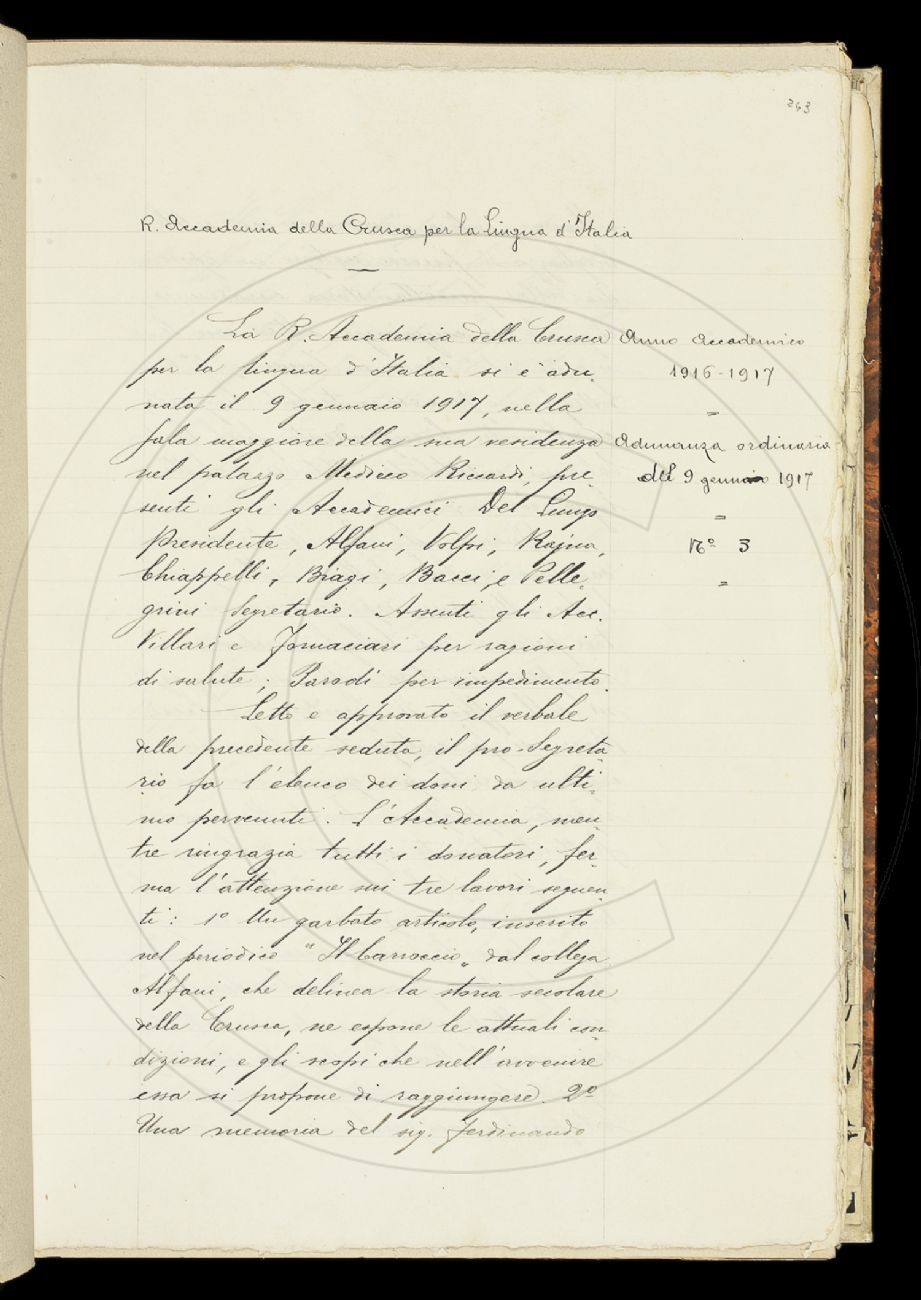 263
R. Accademia della Crusca per la Lingua d'Italia
La R. Accademia della Crusca
per la lingua d'Italia si è adu-
nata il 9 gennaio 1917, nella
Sala maggiore della sua residenza
nel palazzo Mediceo Riccardi, pre-
senti gli Accademici Del Lungo
Presidente, Alfani, Volpi, Rajna,
Chiappelli, Biagi, Bacci, e Pelle-
grini Segretario. Assenti gli Acc.
Villari e Fornaciari per ragioni
di salute; Parodi per impedimento.
Letto e approvato il verbale
della precedente seduta, il pro-Segreta-
rio fa l'elenco dei doni da ulti-
mo pervenuti. L'Accademia, men-
tre ringrazia tutti i donatori, fer-
ma l'attenzione sui tre lavori seguen-
ti: 1º Un garbato articolo, inserito
nel periodico "Il Carroccio" dal collega
Alfani, che delinea la storia secolare
della Crusca, ne espone le attuali con-
dizioni, e gli scopi che nell'avvenire
essa si propone di raggiungere. 2º
Una memoria del sig. Ferdinando
Anno Accademico
1916-1917
=
Adunanza ordinaria
del 9 gennaio 1917
=
Nº 3
=